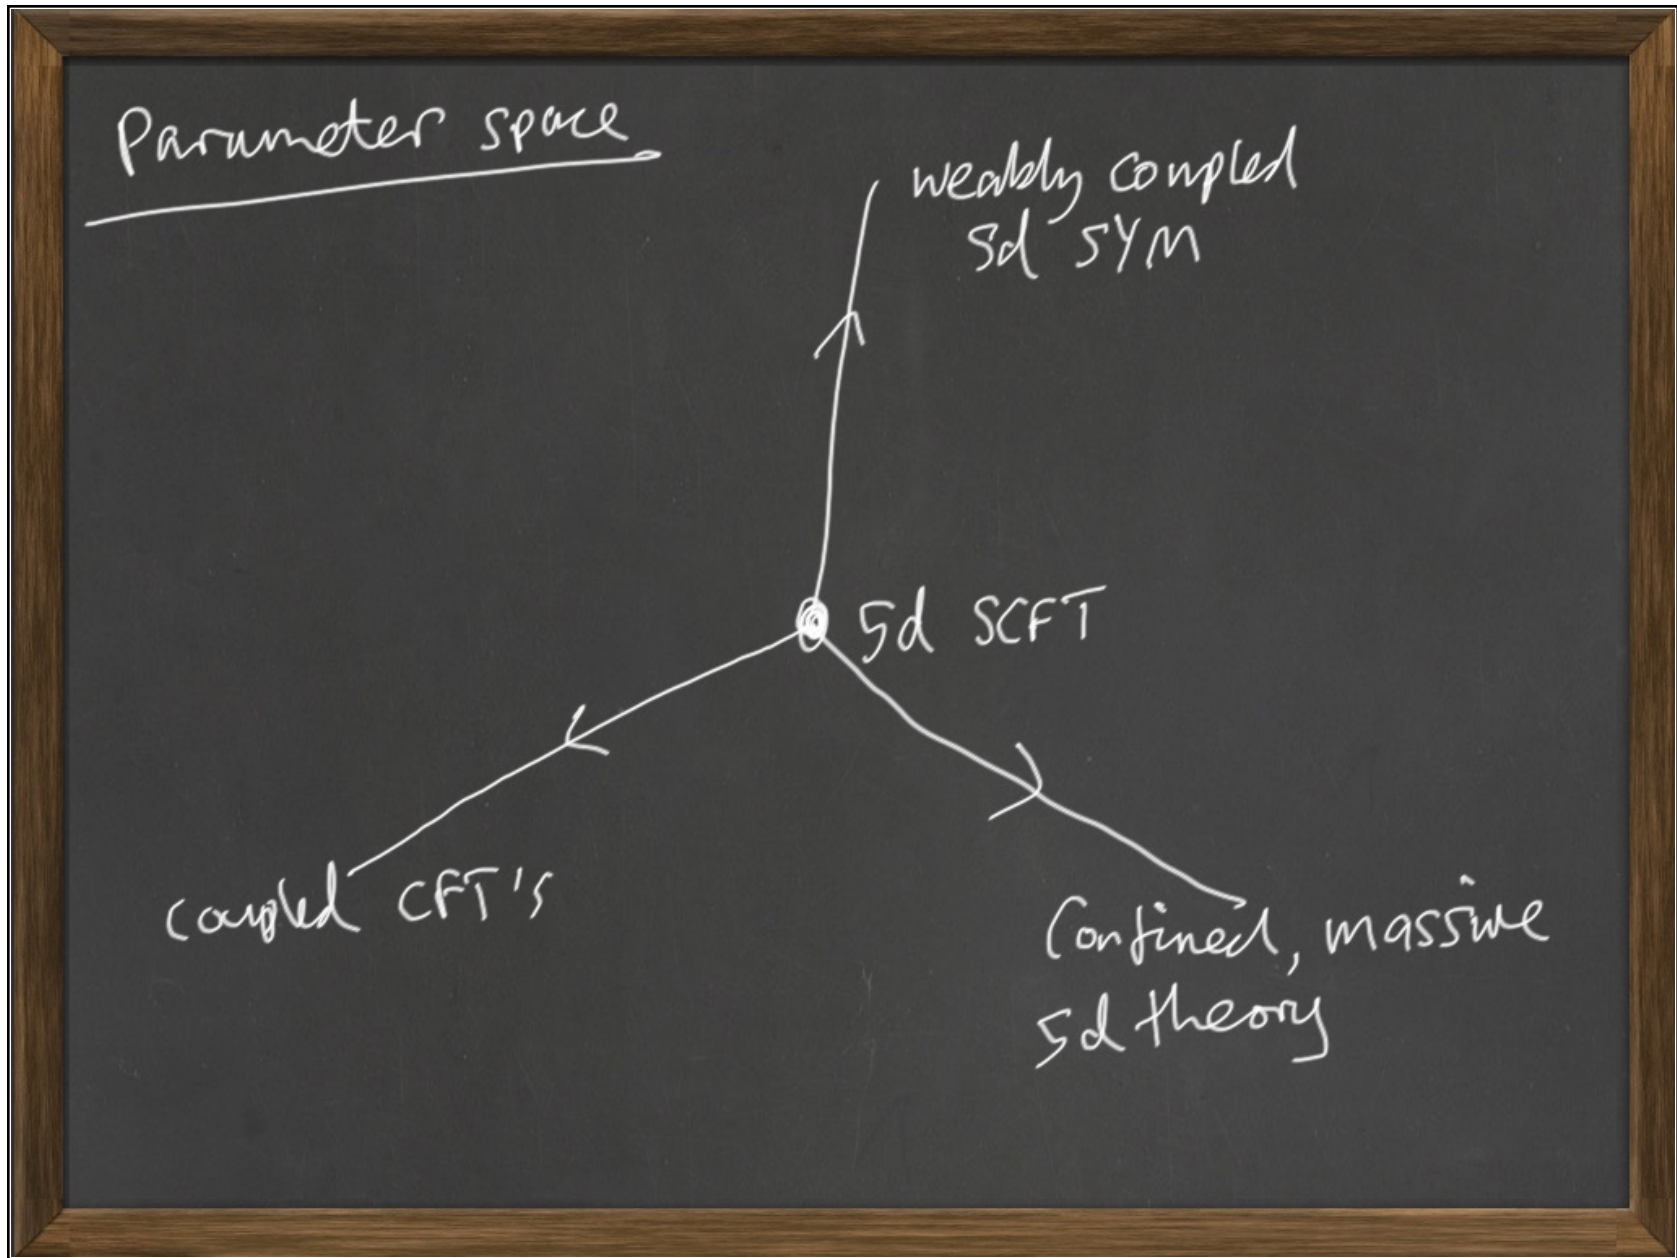 Parameter space
weakly coupled
5d SYM
5d SCFT
coupled CFT's
Confined, massive
5d theory